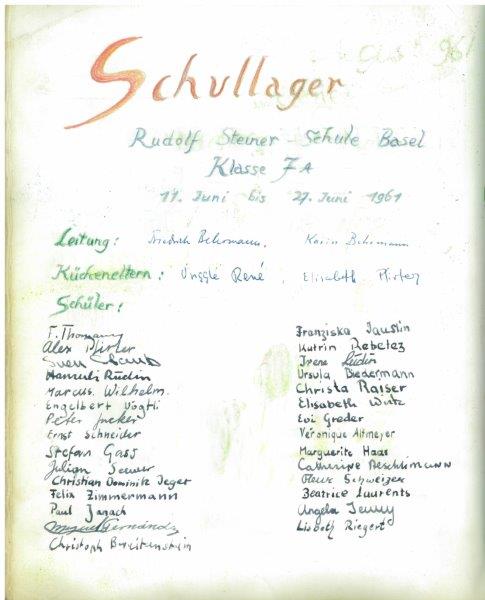 Schullager
Rudolf Steiner-Schule Basel
Klasse 7A
11. Juni bis 27. Juni 1961
Leitung: Friedrich Behrmann. Karin Behrmann
Kücheneltern: Ünggle René, Elisabeth
Schüler:
F. Thomann
Alex Pfirter
Sven
Hannueli Rüdin
Marcus Wilhelm.
Engelbert Vögtli
Peter Jucker
Ernst Schneider
Stefan Gass
Julian
Christian Dominik Jeger
Felix Zimmermann
Paul Janach
Christoph Breitenstein
Franziska Jauslin
Katrin Rebetez
Irene Lüdin
Ursula Biedermann
Christa Raiser
Elisabeth Wirtz
Evi Greder
Véronique Altmeyer
Marguerite Haas
Catherine Aeschlimann
Fleur Schweizer
Beatrice Laurents
Angela Jenny
Lisbeth Riegert